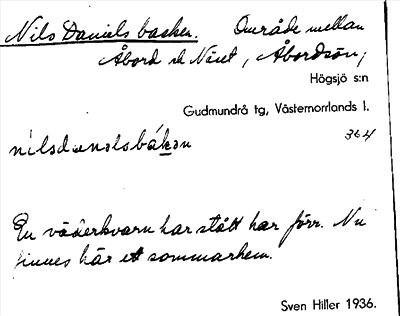 Nils Daniels backen. Område mellan
Åbord o. Näset, Åbordsön,
Högsjö s:n
Gudmundrå tg, Västernorrlands l.
364
En väderkvarn har stått här förr. Nu
finnes här ett sommarhem.
Sven Hiller 1936.